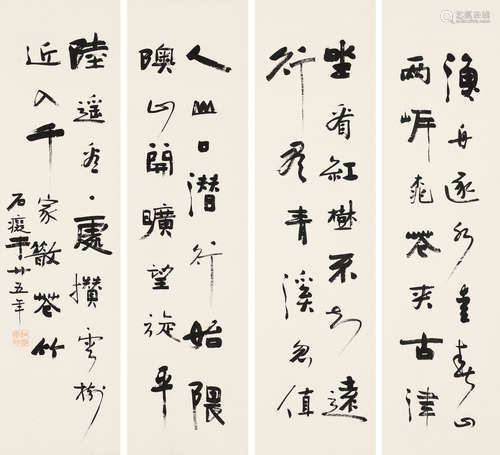 漁舟逐水愛春山
兩岸桃花夾古津
坐看紅樹不知遠
行盡青溪忽值
人山口潛行始隈
隩山開曠望旋平
陸遥看一處攢雲樹
近入千家散花竹
石 廿五年